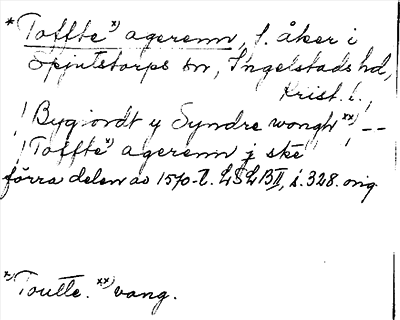 * Toffte x) ageren, f. åker i
Spjutstorps sn, Ingelstads hd,
Krist. l.,
! Bygiordt y Syndre wongh xx) --
! Toffte x) ageren j ske
förra delen av 1570-t. LSLB II, s. 328. orig
x) Toutte. xx) vang.